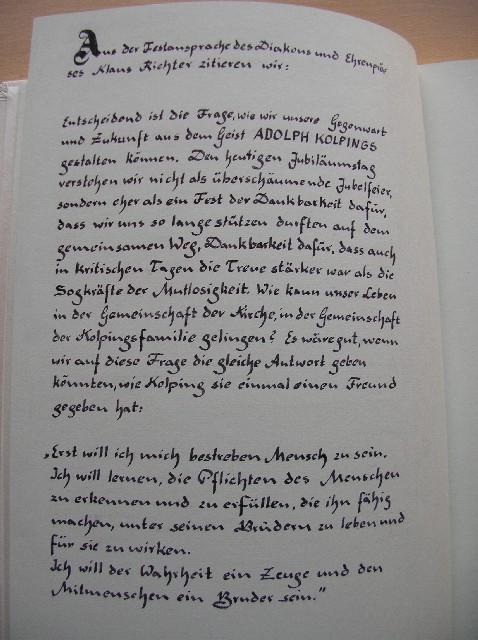 Aus der Festansprache des Diakons und Ehrenprä
ses Klaus Richter zitieren wir:
Entscheidend ist die Frage, wie wir unsere Gegenwart
und Zukunft aus dem Geist ADOLPH KOLPINGS
gestalten können. Den heutigen Jubiläumstag
verstehen wir nicht als überschäumende Jubelfeier,
sondern eher als ein Fest der Dankbarkeit dafür,
dass wir uns so lange stützen durften auf dem
gemeinsamen Weg, Dankbarkeit dafür, dass auch
in kritischen Tagen die Treue stärker war als die
Sogkräfte der Mutlosigkeit. Wie kann unser Leben
in der Gemeinschaft der Kirche, in der Gemeinschaft
der Kolpingsfamilie gelingen? Es wäre gut, wenn
wir auf diese Frage die gleiche Antwort geben
könnten, wie Kolping sie einmal einen Freund
gegeben hat:
„Erst will ich mich bestreben Mensch zu sein.
Ich will lernen, die Pflichten des Menschen
zu erkennen und zu erfüllen, die ihn fähig
machen, unter seinen Brüdern zu leben und
für sie zu wirken.
Ich will der Wahrheit ein Zeuge und den
Mitmenschen ein Bruder sein."